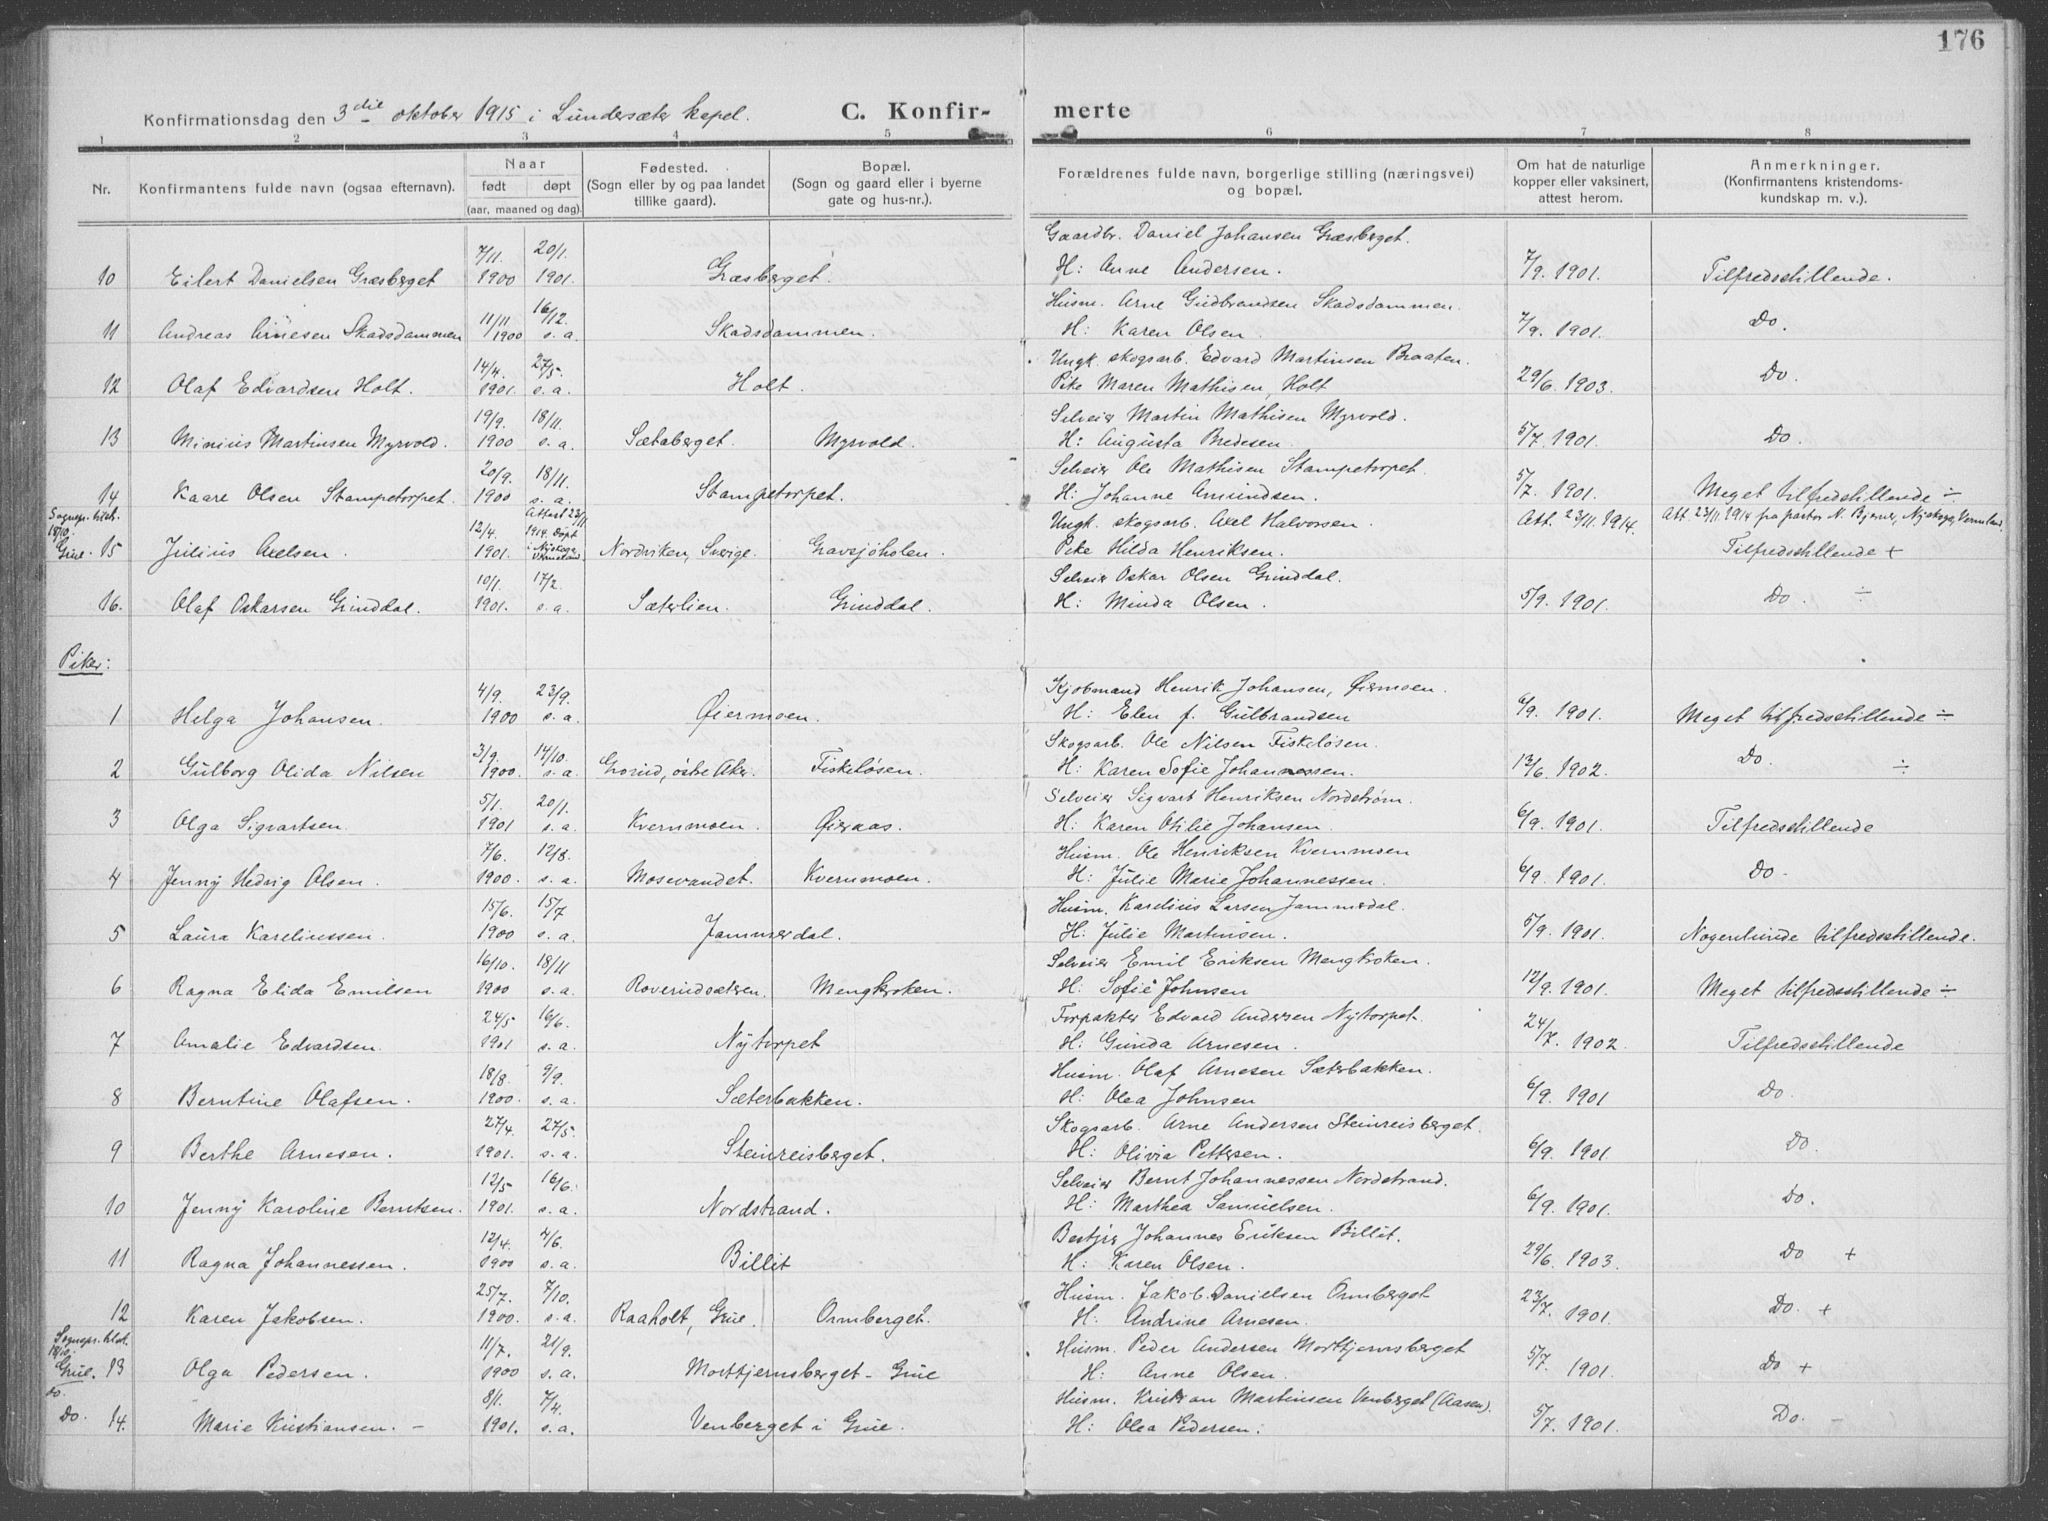 176
Konfirmationsdag den 3die oktober 1915 i Lundersæter kapel. C. Konfirmerte
1 2 3 4 5 6 7 8
Nr. Konfirmantens fulde navn (ogsaa efternavn). Naar født døpt (aar, maaned og dag). Fødested. (Sogn eller by og paa landet tillike gaard). Bopæl. (Sogn og gaard eller i byerne gate og hus-nr.). Forældrenes fulde navn, borgerlige stilling (næringsvei) og bopæl. Om hat de naturlige kopper eller vaksinert, attest herom. Anmerkninger. (Konfirmantens kristendomskundskap m. v.).
7/11. 20/1. Gaardbr. Daniel Johansen Græsberget.
10 Eilert Danielsen Græsberget 1900 1901. Græsberget. H: Anne Andersen. 7/9. 1901. Tilfredsstillende.
11/11 16/12. Husm. Arne Gudbrandsen Skadsdammen.
11 Andreas Arnesen Skadsdammen 1900 s.a. Skadsdammen. H: Karen Olsen. 7/9. 1901. Do.
14/4. 27/5. Ungk. skogsarb. Edvard Martinsen Braaten.
12 Olaf Edvardsen Holt. 1901. s.a. Holt. Pike Maren Mathisen, Holt 29/6. 1903. Do.
19/9. 18/11. Selveier Martin Mathisen Myrvold.
13 Minius Martinsen Myrvold. 1900 s.a. Sætaberget. Myrvold. H: Augusta Bredesen. 5/7. 1901. Do.
20/9. 18/11. Selveier Ole Mathisen Stampetorpet.
14 Kaare Olsen Stampetorpet. 1900 s.a. Stampetorpet. H: Johanne Amundsen. 5/7. 1901. Meget tilfredsstillende ÷
18/10. 12/4. Attest 23/11 1914. Døpt Ungk. skogsarb. Axel Halvorsen Att. 23/11. 1914. Att. 23/11 1914 fra pastor N. Bjerner, Nyskoga, Vermland.
Grue. 15 Julius Axelsen. 1901. i Nyskoga Vermland. Nordviken, Sverige. Gravsjøholen. Pike Hilda Henriksen. Tilfredsstillende +
10/1. 17/2. Selveier Oskar Olsen Grinddal.
16. Olaf Oskarsen Grinddal. 1901. s.a. Sæterlien. Grinddal. H: Minda Olsen. 5/9. 1901. Do. ÷
Piker:
4/9. 23/9. Kjøbmand Henrik Johansen, Øiermoen.
1 Helga Johansen. 1900 s.a. Øiermoen. H: Elen f. Gulbrandsen 6/9. 1901. Meget tilfredsstillende ÷
3/9. 14/10. Skogsarb. Ole Nilsen Fiskeløsen.
2 Gulborg Olida Nilsen 1900. s.a. Grorud, østre Aker. Fiskeløsen. H: Karen Sofie Johannessen. 13/6. 1902. Do. ÷
5/1. 20/1. Selveier Sigvart Henriksen Nordstrøm.
3 Olga Sigvartsen. 1901 s.a. Kvernmoen. Øieraas. H: Karen Otilie Johansen. 6/9. 1901. Tilfredsstillende
7/6. 12/8. Husm. Ole Henriksen Kvernmoen
4 Jenny Hedvig Olsen. 1900. s.a. Mosevandet. Kvernmoen. H: Julie Marie Johannessen. 6/9. 1901. Do.
15/6. 15/7 Husm. Karelius Larsen Jammerdal.
5 Laura Kareliussen. 1900 s.a. Jammerdal. H: Julie Martinsen. 5/9. 1901. Nogenlunde tilfredsstillende.
16/10. 18/11 Selveier Emil Eriksen Mengkroken.
6 Ragna Elida Emilsen 1900 s.a. Roverudsæteren. Mengkroken. H: Sofie Johnsen 12/9. 1901. Meget tilfredsstillende ÷
24/5 16/6. Forpakter Edvard Andersen Nytorpet.
7 Amalie Edvardsen. 1901 s.a. Nytorpet H: Gunda Arnesen. 24/7. 1902. Tilfredsstillende
18/8. 9/9. Husm. Olaf Arnesen Sæterbakken.
8 Berntine Olafsen. 1900. s.a. Sæterbakken. H: Olea Johnsen 6/9. 1901 Do.
27/4. 27/5. Skogsarb. Arne Andersen Steinreisberget.
9 Berthe Arnesen. 1901. s.a. Steinreisberget. H: Olivia Pettersen. 6/9. 1901. Do.
12/5 16/6. Selveier Bernt Johannessen Nordstrand.
10 Jenny Karoline Berntsen. 1901. s.a. Nordstrand. H: Marthea Samuelsen. 6/9. 1901. Do.
12/4. 4/6. Johannes Eriksen Billit.
11 Ragna Johannessen. 1900 s.a. Billit H: Karen Olsen. 29/6. 1903. Do +
25/7. 7/10. Husm. Jakob Danielsen Ormberget
12 Karen Jakobsen. 1900. s.a. Raaholt, Grue. Ormberget. H: Andrine Arnesen. 23/7. 1901. Do. +
18/10. 11/7. 21/9. Husm. Peder Andersen Morttjernsberget
Grue. 13 Olga Pedersen. 1900 s.a. Morttjernsberget - Grue H: Anne Olsen. 5/7. 1901. Do +
do. 8/1. 7/4. Husm. Kristian Martinsen Venberget (Aasen).
Do. 14. Marie Kristiansen. - 1901. s.a. Venberget i Grue. H: Olea Pedersen. 5/7. 1901. Do. -